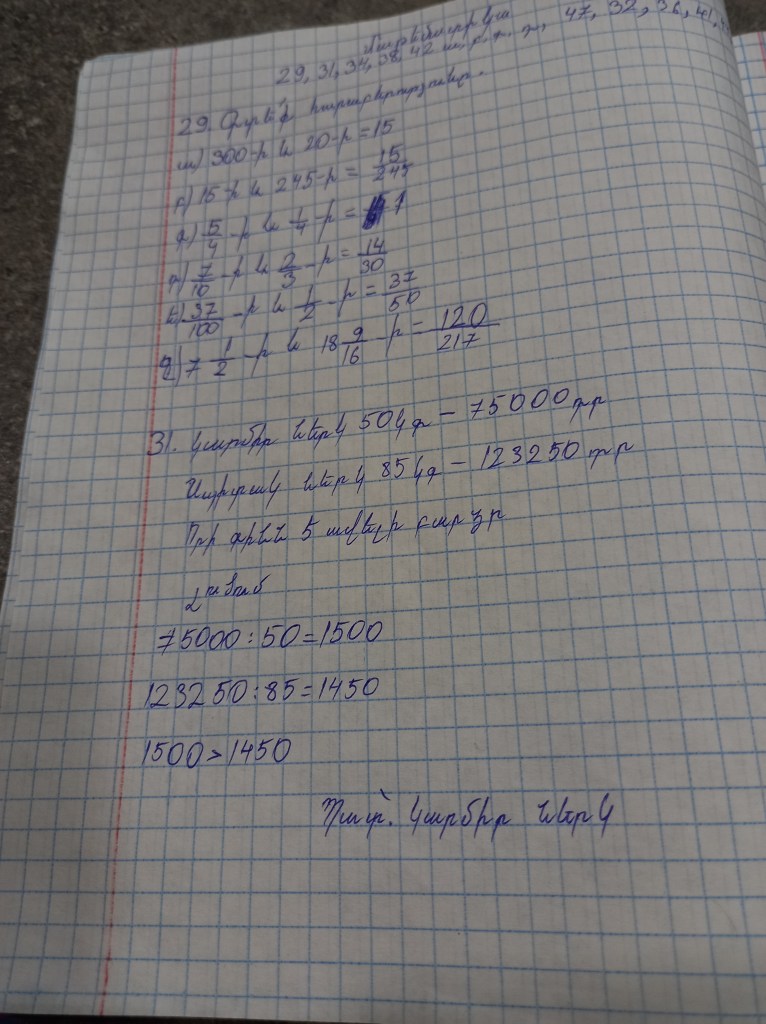 Մաթեմատիկա
29, 31, 34, 38, 42 ա, բ, գ, դ, 47, 32, 36, 41,
29. Գրե՛ք հարաբերությունը.
ա) 300-ի և 20-ի = 15
բ) 15-ի և 245-ի = 15/245
գ) 5/4-ի և 1/4-ի = 1
դ) 7/10-ի և 2/3-ի = 14/30
ե) 37/100-ի և 1/2-ի = 37/50
զ) 7 1/2-ի և 18 9/16-ի = 120/217
31. Կարմիր ներկ 50կգ – 75000դր
Սպիտակ ներկ 85կգ – 123250դր
Որի գինն է ավելի բարձր
Լուծում
75000:50=1500
123250:85=1450
1500>1450
Պատ՝. կարմիր ներկ